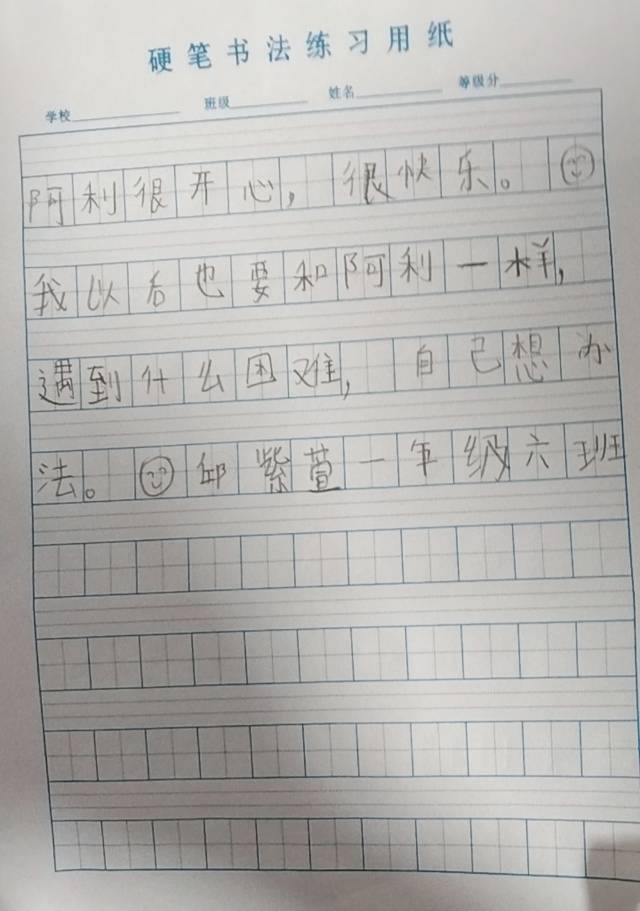 硬笔书法练习用纸
学校 班级 姓名 等级分
阿利很开心，很快乐。
我以后也要和阿利一样，
遇到什么困难，自己想办
法。邱紫萱一年级六班